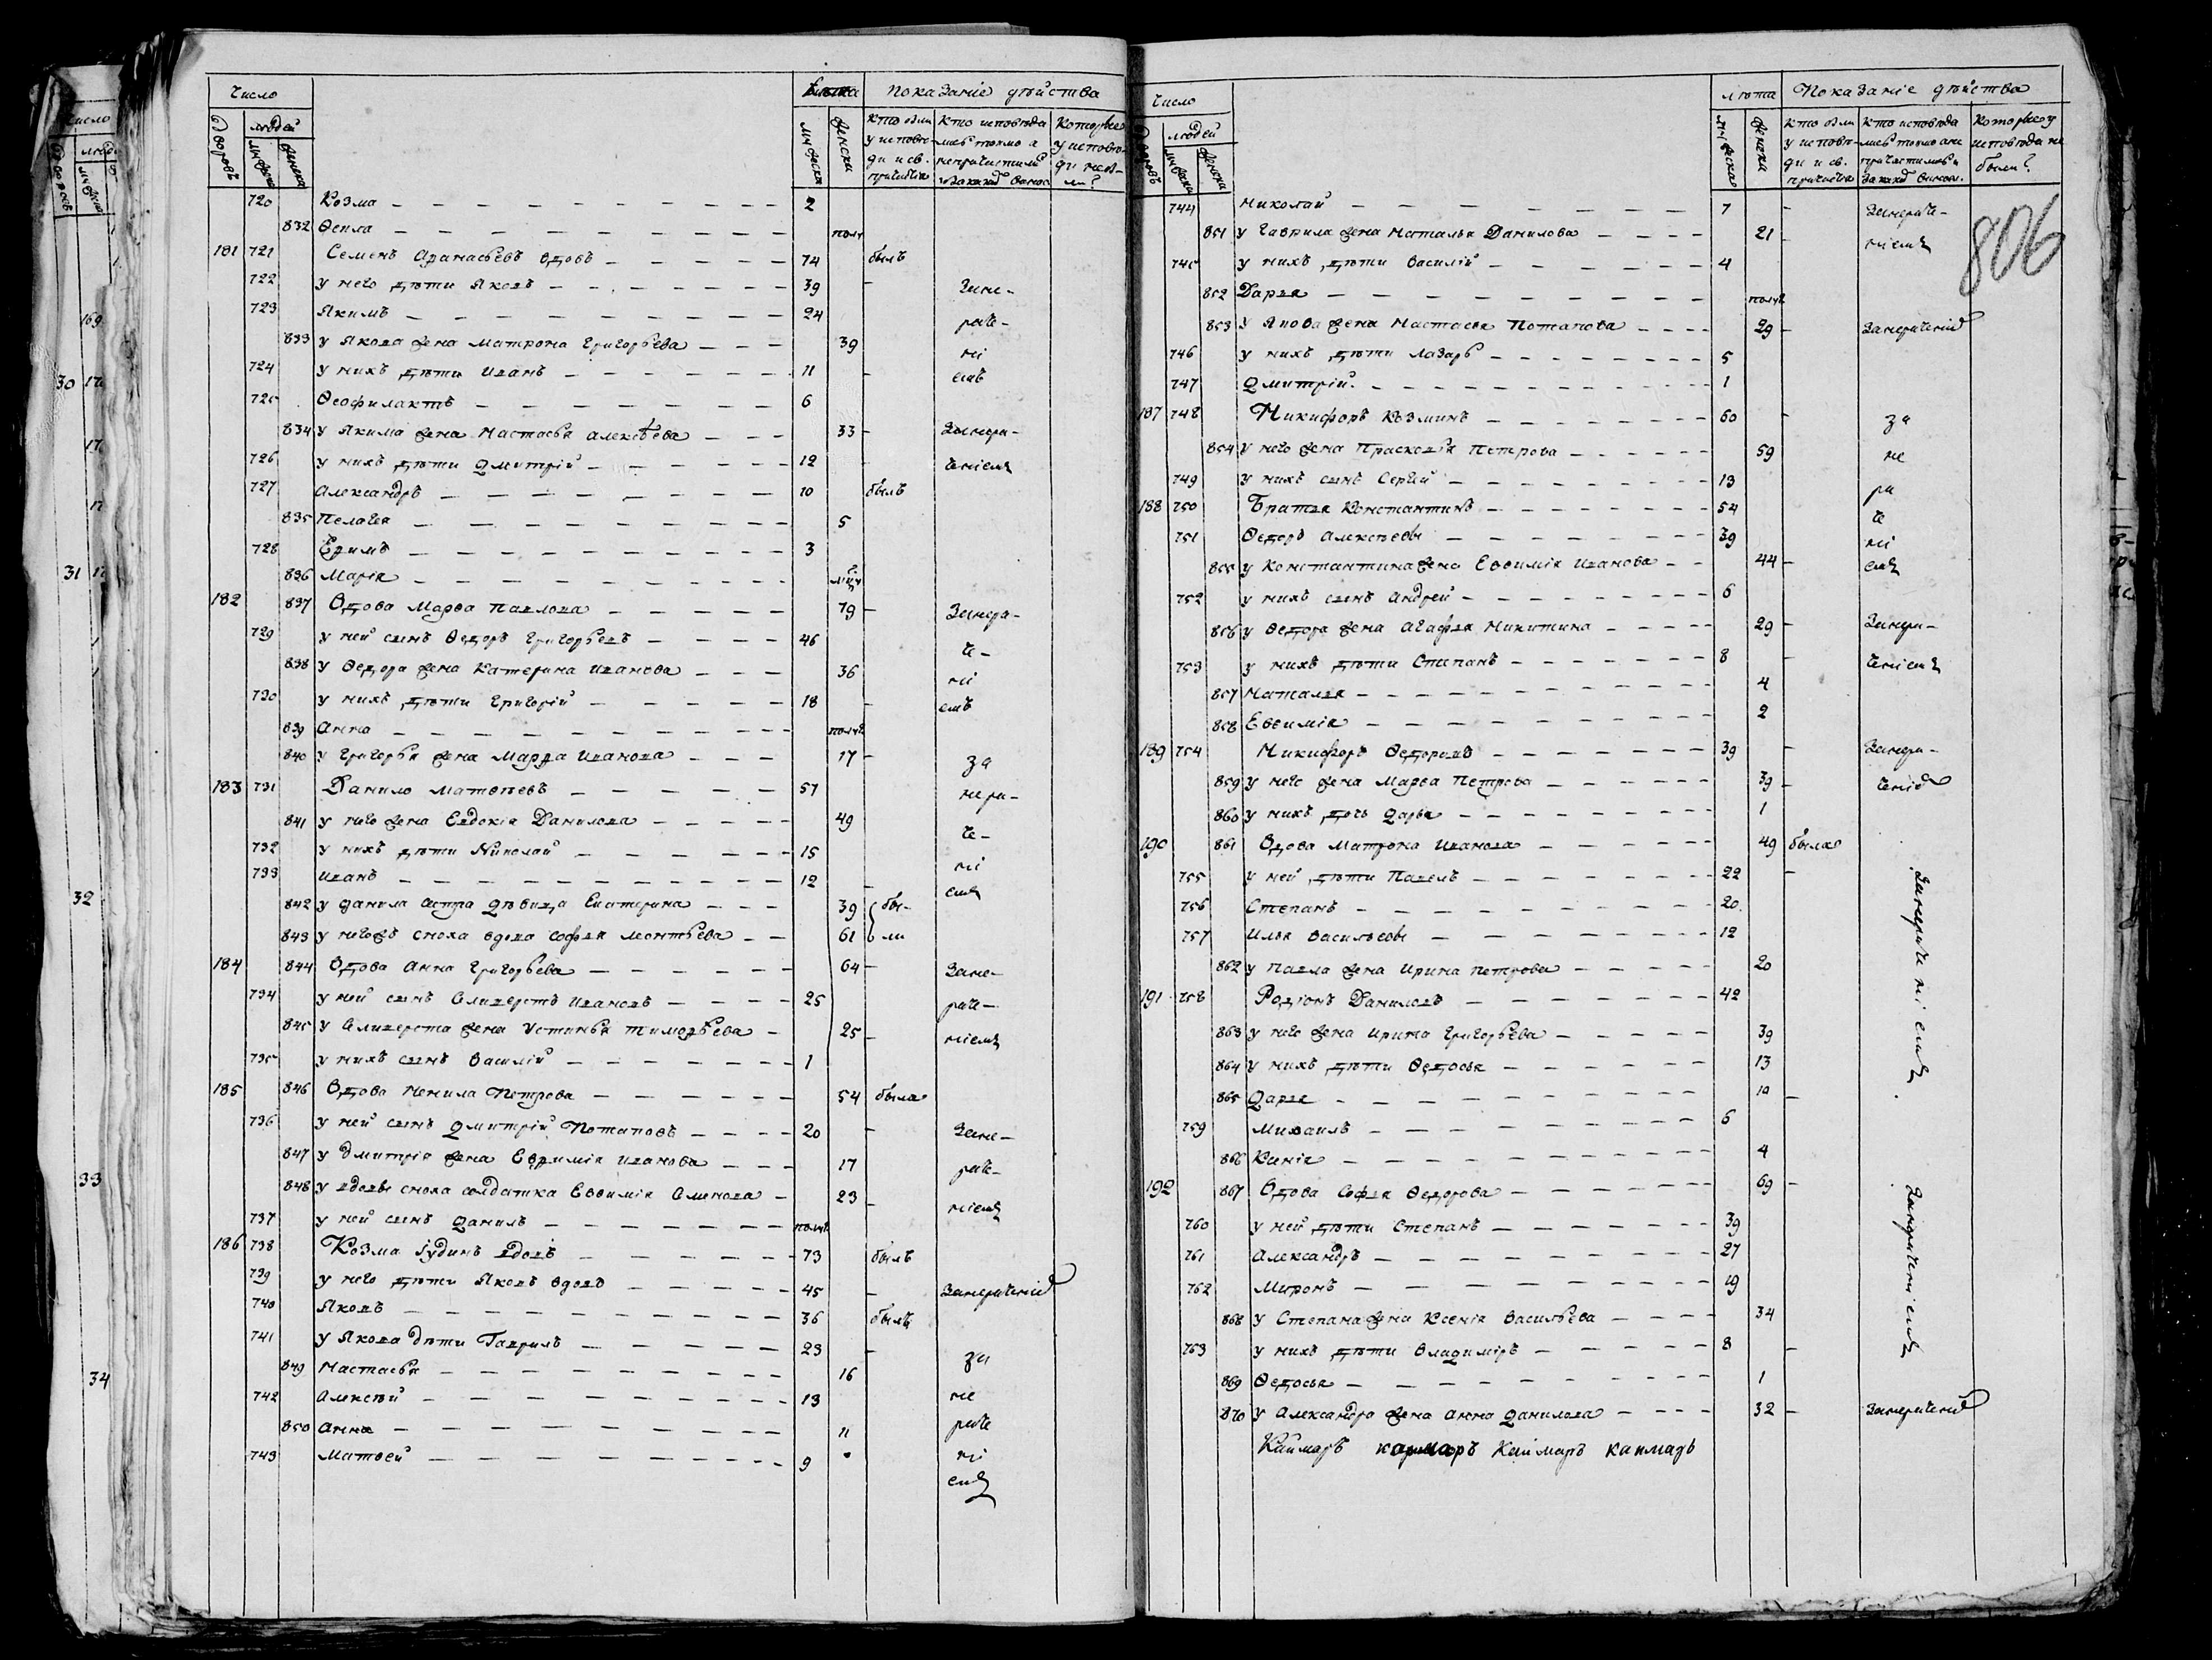 Число
Дворовъ
людей
мужеска
женска
лѣта
мужеска
женска
Показаніе дѣйства
кто были у исповѣди и св. причастія
кто исповѣдались токмо а непричастились и за какой виной
Которые у исповѣди не были?
720 Козма 2
832 Ѳекла полу
181 721 Семенъ Афанасьевъ вдовъ 74 былъ
722 у него дѣти Яковъ 39 - Зане-
723 Якимъ 24 раче-
833 у Якова жена Матрона Григорьева 39 ні
724 у нихъ дѣти Иванъ 11 - емъ
725 Ѳеофилактъ 6
834 у Якима жена Настасья Алексѣева 33 - Занера-
726 у нихъ дѣти Дмитрій 12 - ченіемъ
727 Александръ 10 былъ
835 Пелагея 5
728 Ефимъ 3
836 Марія
182 837 Вдова Марѳа Павлова 79 - Занера-
729 у ней сынъ Ѳедоръ Григорьевъ 46 че-
838 у Ѳедора жена Катерина Иванова 36 ні
730 у нихъ дѣти Григорій 18 - емъ
839 Анна полуг
840 у Григорья жена Марфа Иванова 17 - за
183 731 Данило Матвѣевъ 57 нера-
841 у него жена Евдокія Данилова 49 че-
732 у нихъ дѣти Николай 15 ні
733 Иванъ 12 - емъ
842 у Данила сестра дѣвица Екатерина 39 бы-
843 у негожъ сноха вдова Софья Леонтьева 61 ли
184 844 Вдова Анна Григорьева 64 - Зане-
734 у ней сынъ Селиверстъ Ивановъ 25 раче-
845 у Селиверста жена Устинья Тимофѣева 25 - ніемъ
735 у нихъ сынъ Василій 1
185 846 Вдова Ненила Петрова 54 была
736 у ней сынъ Дмитрій Потаповъ 20 - Зане-
847 у Дмитрія жена Евфимія Иванова 17 раче-
848 у вдовы сноха солдатка Евѳимія Семенова 23 - ніемъ
737 у ней сынъ Данилъ полуг
186 738 Козма Іудинъ вдовъ 73 былъ
739 у него дѣти Яковъ вдовъ 45 - Занераченіе
740 Яковъ 36 былъ
741 у Якова дѣти Гаврилъ 23 - за
849 Настасья 16 не
742 Алексѣй 13 раче
850 Анна 11 ні
743 Матвей 9 емъ
Число
Дворовъ
людей
мужеска
женска
лѣта
мужеска
женска
Показаніе дѣйства
кто были у исповѣди и св. причастія
кто исповѣдались токмо а не причастились и за какой виной.
Которые у исповѣди не были?
806
744 Николай 7 - Занераче-
851 у Гаврила жена Наталья Данилова 21 - ніемъ
745 у нихъ дѣти Василій 4
852 Дарья полуг
853 у Якова жена Настасья Потапова 29 - Занераченіе
746 у нихъ дѣти Лазарь 5
747 Дмитрій. 1
187 748 Никифоръ Козминъ 60 - за
854 у него жена Прасковія Петрова 59 не
749 у нихъ сынъ Сергій 13 ра
188 750 Братья Константинъ 54 че
751 Ѳедоръ Алексѣевы 39 ні
855 у Константина жена Евѳимія Иванова 44 - емъ
752 у нихъ сынъ Андрей 6
856 у Ѳедора жена Агафья Никитина 29 - Занера-
753 у нихъ дѣти Стипанъ 8 - ченіемъ
857 Наталья 4
858 Евѳимія 2
189 754 Никифоръ Ѳедоровъ 39 - Занера-
859 у него жена Марѳа Петрова 39 - ченіе
860 у нихъ дочь Дарья 1
190 861 Вдова Матрона Иванова 49 была
755 у ней дѣти Павелъ 22 -
756 Степанъ 20
757 Илья Васильевы 12
862 у Павла жена Ирина Петрова 20
Занераченіемъ
191 758 Родіонъ Даниловъ 42
863 у него жена Ирина Григорьева 39
864 у нихъ дѣти Ѳедосья 13
865 Дарья 10 -
759 Михаилъ 6
866 Ксенія 4
192 867 Вдова Софья Ѳедорова 69 -
760 у ней дѣти Степанъ 39
761 Александръ 27
762 Миронъ 19
Занераченіемъ
868 у Степана жена Ксенія Васильева 34
763 у нихъ дѣти Владиміръ 8 -
869 Ѳедосья 1
870 у Александра жена Анна Данилова 32 - Занераченіе
Каймаръ каймаръ Каймаръ каимаръ